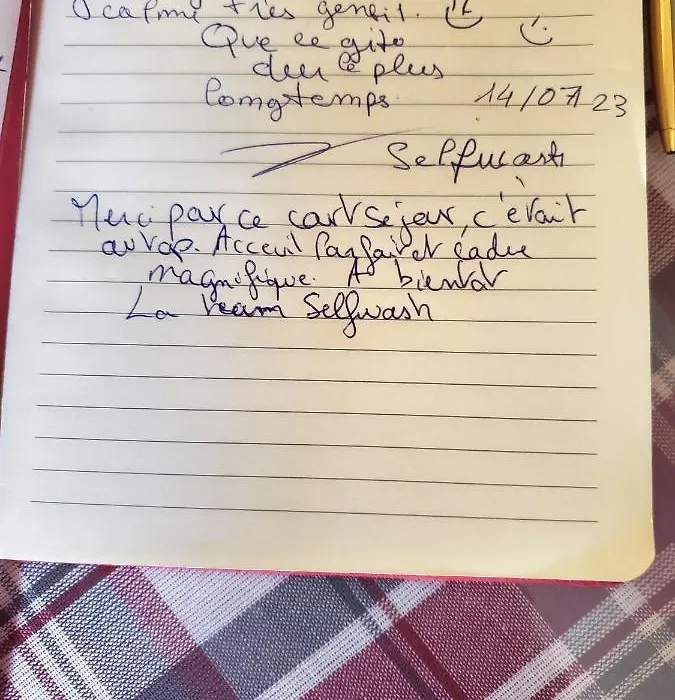 calme très gentil.
Que ce gite
du le plus
longtemps. 14/07/23
Selfwash
Merci par ce cart séjour, c'était
au top. Acceuil Parfait et cadre
magnifique. A bientot
La team Selfwash